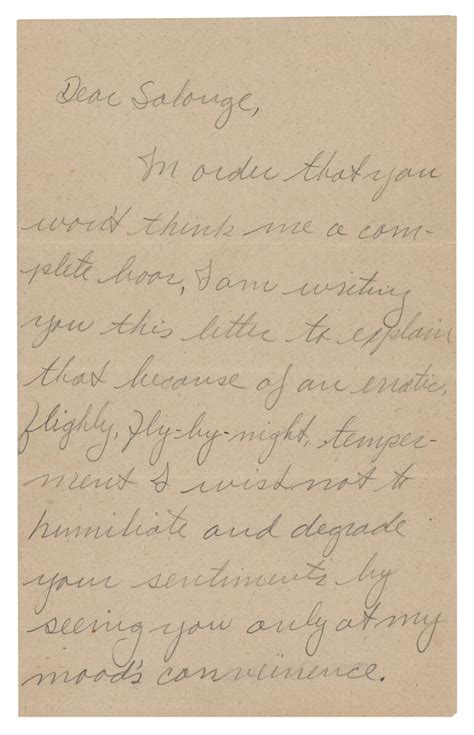 Dear Solonge,
In order that you
won't think me a com-
plete boor, I am writing
you this letter to explain
that because of an erratic,
flighly, fly-by-night, temper-
ment I wish not to
humiliate and degrade
your sentiments by
seeing you only at my
mood's convenience.